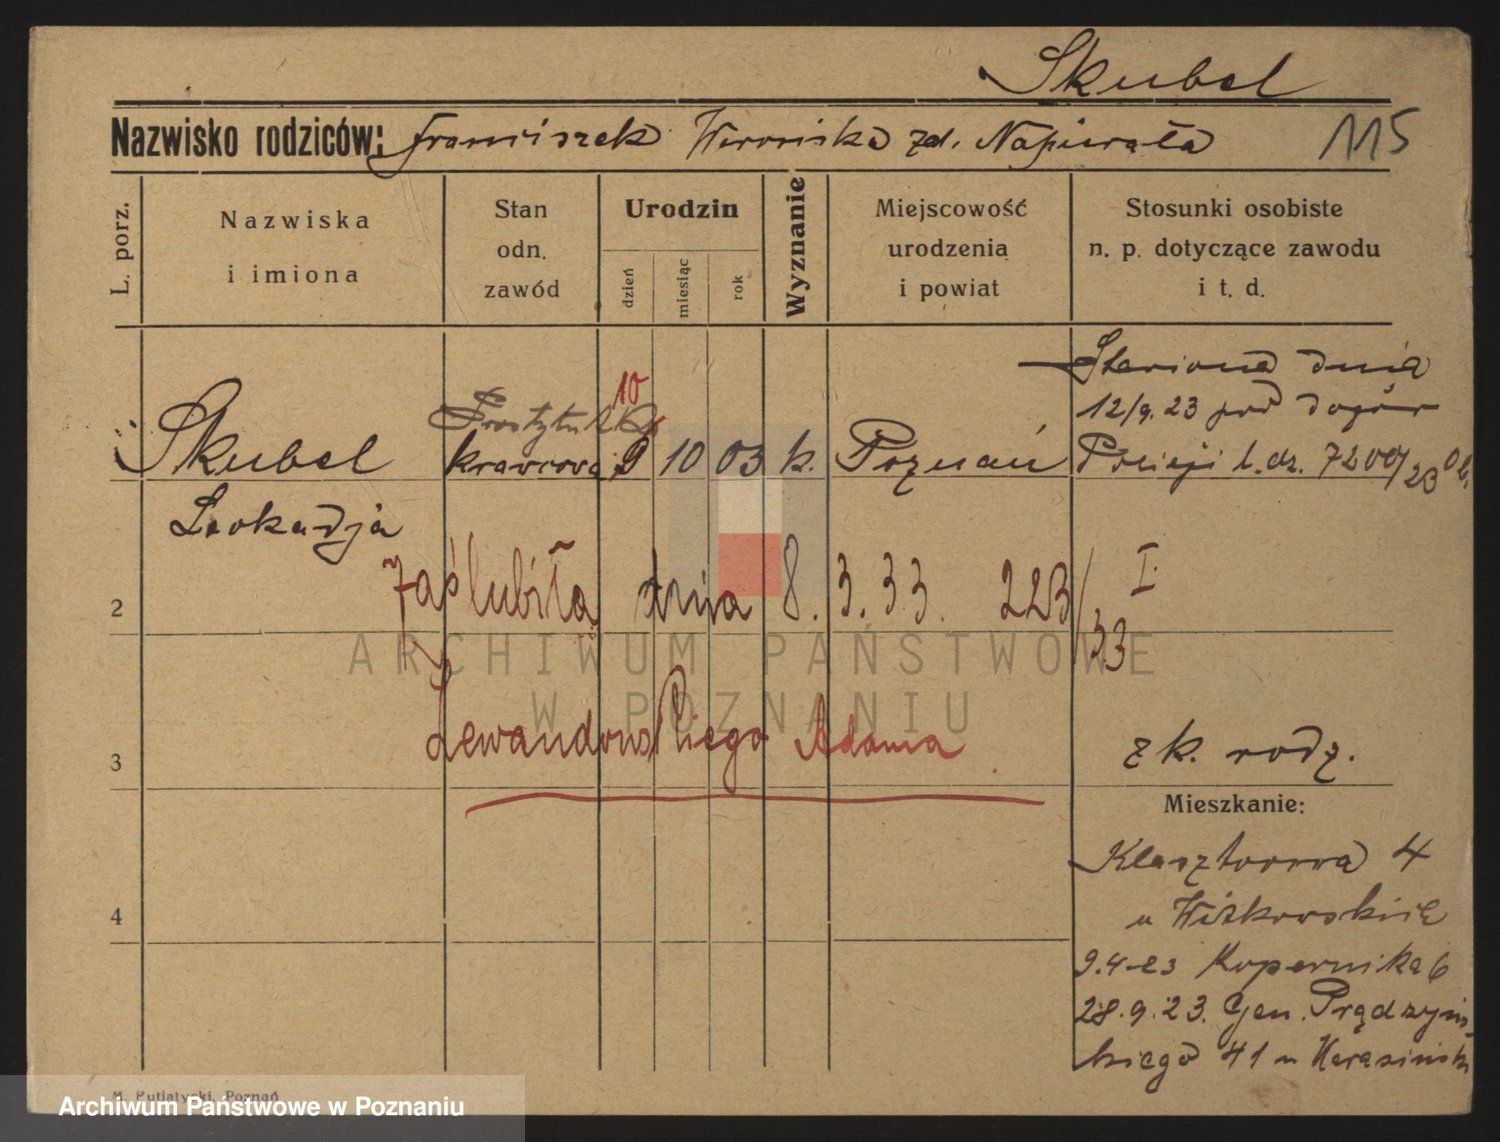 Skubel
Nazwisko rodziców: Franciszek Weronika zd. Napierała 115
L. porz.
Nazwiska
i imiona
Stan
odn.
zawód
Urodzin
dzień
miesiąc
rok
Wyznanie
Miejscowość
urodzenia
i powiat
Stosunki osobiste
n. p. dotyczące zawodu
i t. d.
Stawiona dnia
12/9.23 pod dozór
Policji l. dz. 7200/23
10
Prostytutka
Skubel krawcowa 9 10 03 k. Poznań
Leokadja
zaślubiła dnia 8. 3. 33. 223/33 I
2
Lewandowskiego Adama
3
z k. rodz.
Mieszkanie:
Klasztorna 4
u Witkowskie
4
9.4-23 Kopernika 6
28.9.23. Gen. Prądzyńs-
kiego 41 u
M. Putiatycki, Poznań
ARCHIWUM PAŃSTWOWE
W POZNANIU
Archiwum Państwowe w Poznaniu